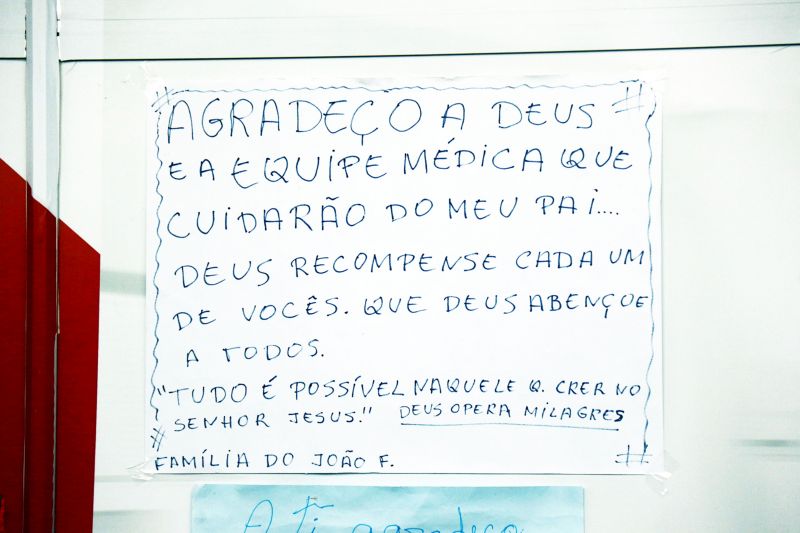 AGRADEÇO A DEUS
E A EQUIPE MÉDICA QUE
CUIDARÃO DO MEU PAI....
DEUS RECOMPENSE CADA UM
DE VOCÊS. QUE DEUS ABENÇOE
A TODOS.
"TUDO É POSSÍVEL NAQUELE Q. CRER NO
SENHOR JESUS." DEUS OPERA MILAGRES
FAMÍLIA DO JOÃO F.
A ti agradeço